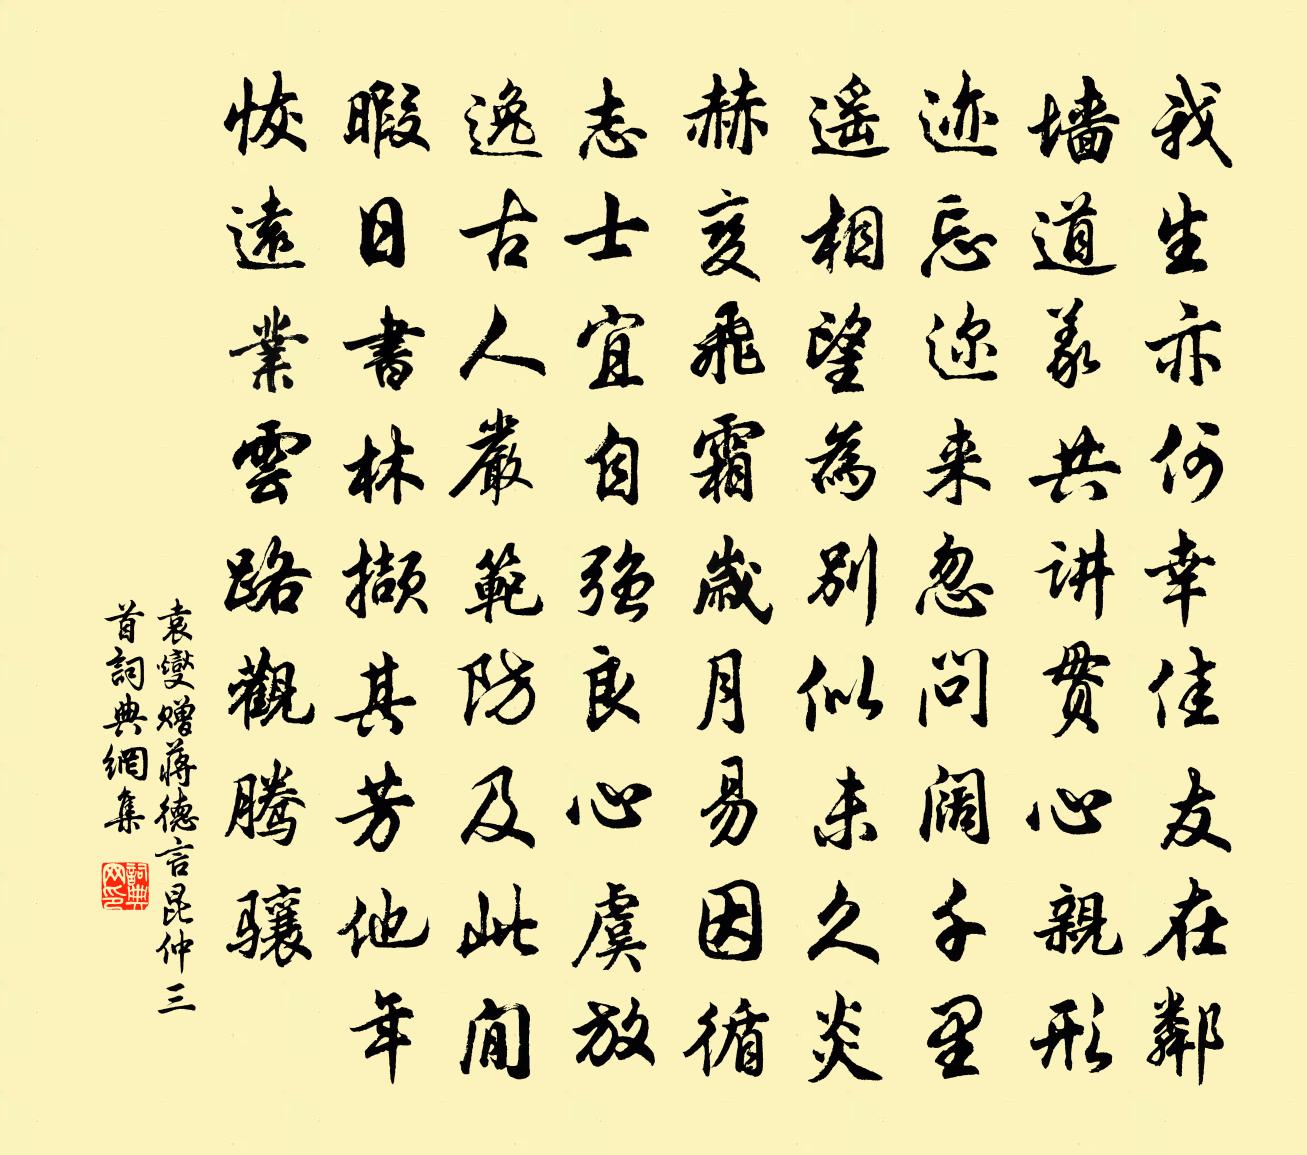 我生亦何幸佳友在鄰
墻道義共讲贯心親形
迹忘迩来忽问阔千里
遥相望為别似未久炎
赫变飛霜歲月易因循
志士宜自强良心虞放
逸古人嚴範防及此閒
暇日書林擷其芳他年
恢遠業雲路觀腾骧
袁燮赠蔣德言昆仲三
首詞典網集
詞典网印